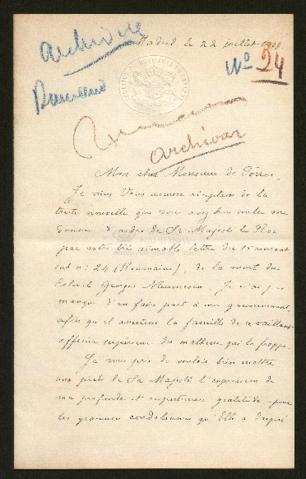 Madrid le 22 juillet 1908
Archivése
Nº 24
Archivar
Mon cher Monsieur de
Je vous accuse réception de la
triste nouvelle que vous avez bien voulu me
donner d'ordre de Sa Majesté le Roi
par votre bien aimable lettre du 15 courant
sub nº 24 (Roumanie), de la mort du
Colonel Georges
manqué d'en faire part à mon gouvernement,
afin qu'il avertisse la famille de ce vaillant
officier supérieur du malheur qui la frappe.
Je vous prie de vouloir bien mettre
aux pieds de Sa Majesté l'expression de
ma profonde et respectueuse gratitude pour
les gracieuses condoléances qu'Elle a daigné